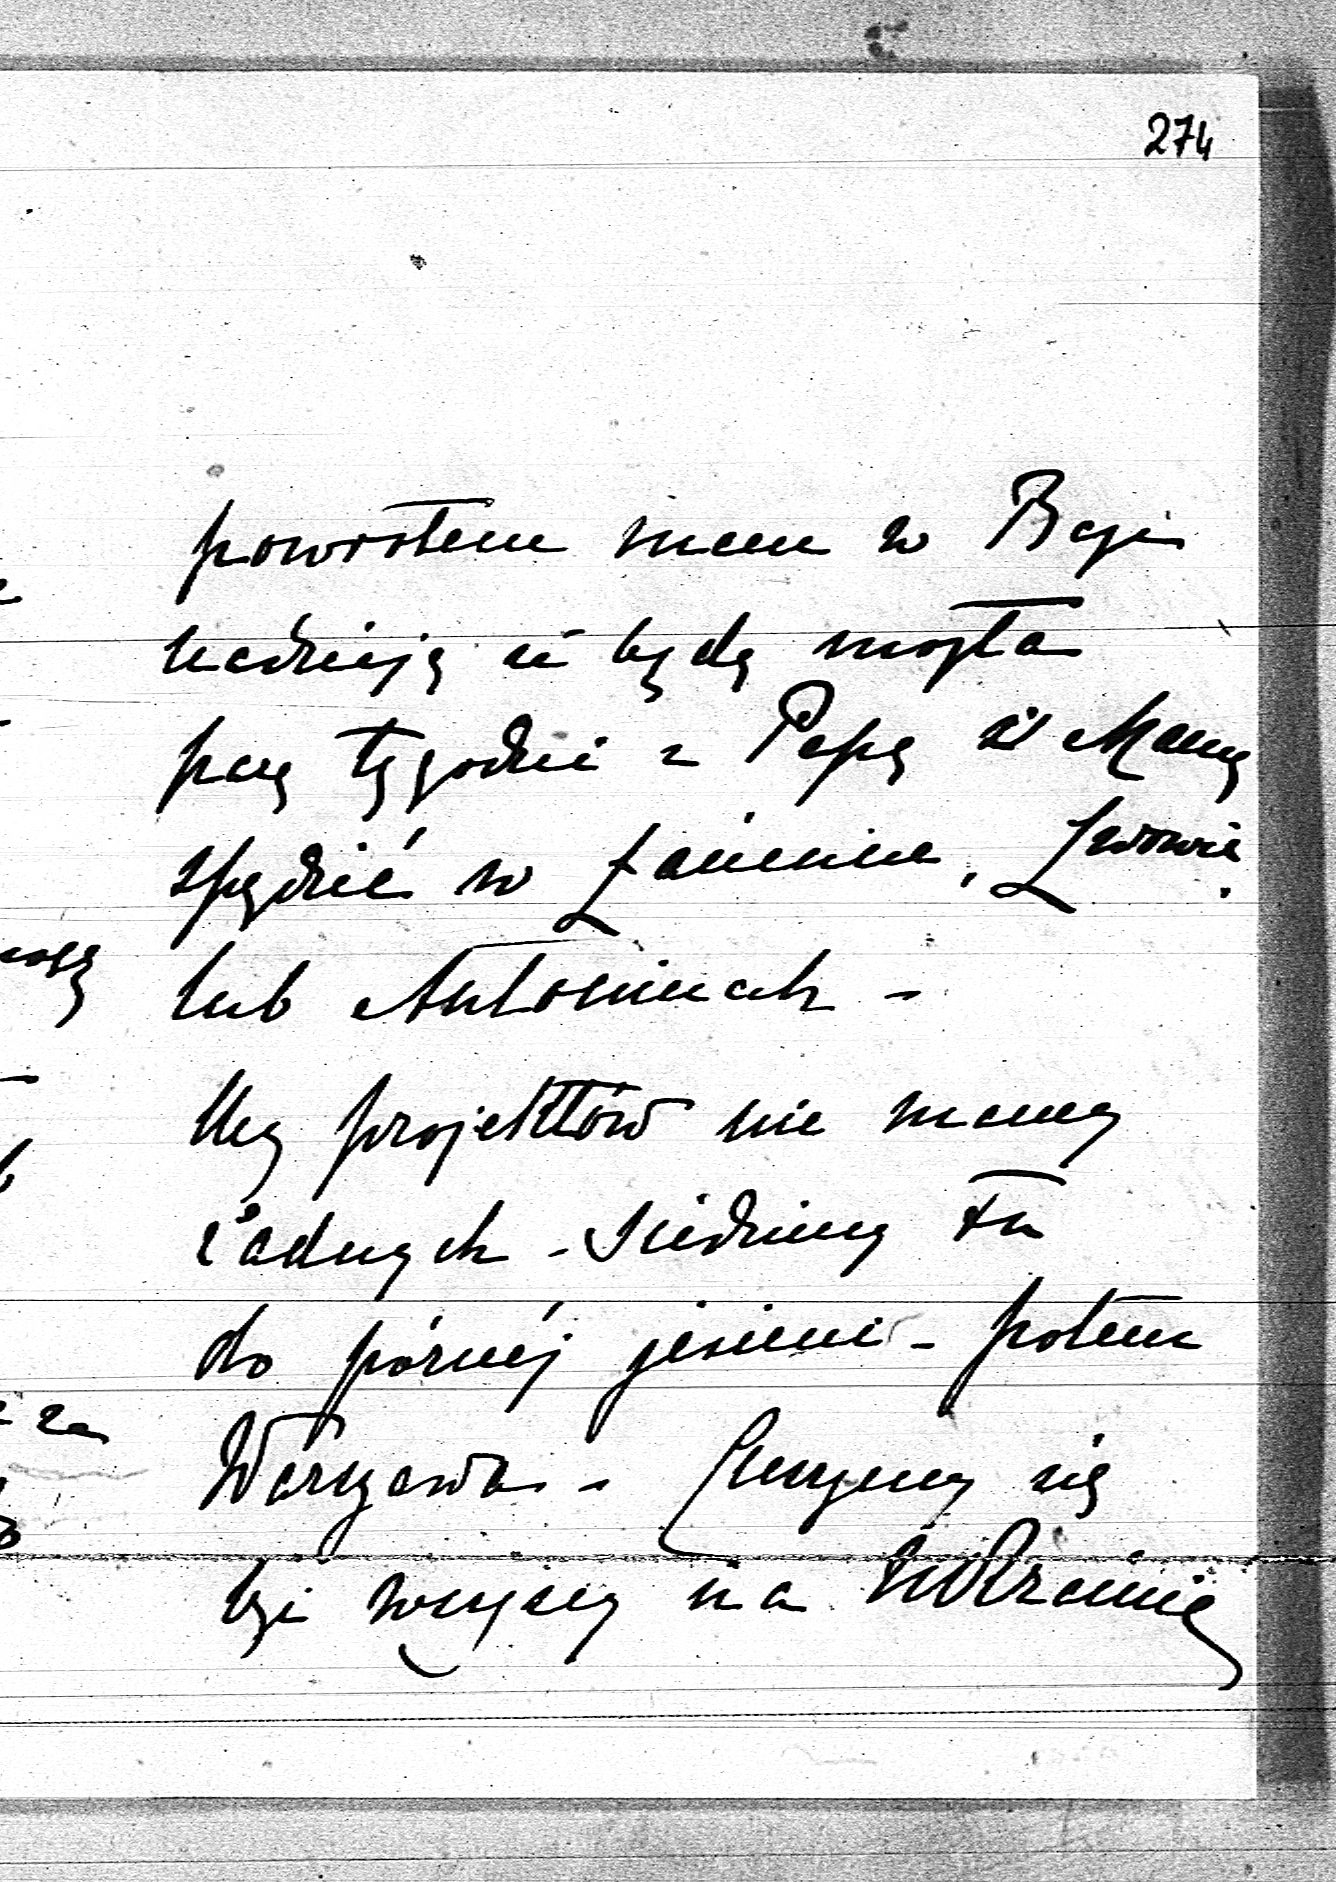 274
powrotem mam w Bogu
nadzieję że będę mogła
parę tygodni z Papą i Mamą
spędzić w Łańcucie, Lwowie
lub Antoninach -
My projektów nie mamy
żadnych - siedzimy tu
do późnéj jesieni - potem
Warszawa - Cieszymy się
być wszyscy na